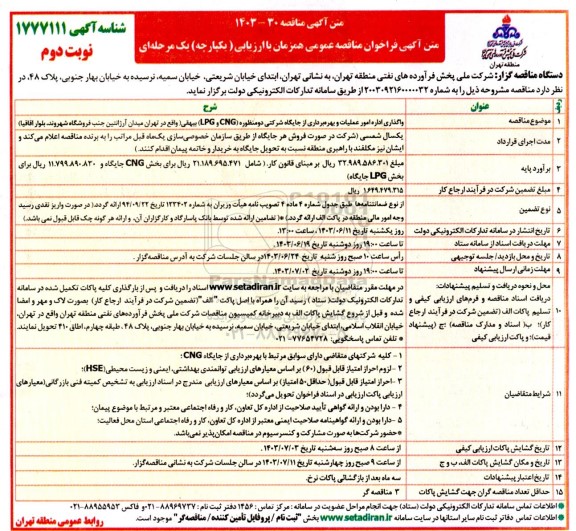 متن آگهی مناقصه ۳۰ - ۱۴۰۳
متن آگهی فراخوان مناقصه عمومی همزمان با ارزیابی (یکپارچه) یک مرحله‌ای
شناسه آگهی ۱۷۷۷۱۱۱
نوبت دوم
منطقه تهران
دستگاه مناقصه گزار: شرکت ملی پخش فرآورده های نفتی منطقه تهران، به نشانی تهران، ابتدای خیابان شریعتی، خیابان سمیه، نرسیده به خیابان بهار جنوبی، پلاک ۴۸، در
نظر دارد مناقصه مشروحه ذیل را به شماره ۲۰۰۳۰۹۲۱۶۰۰۰۰۳۲ از طریق سامانه تدارکات الکترونیکی دولت برگزار نماید.
ردیف عنوان شرح
۱ موضوع مناقصه واگذاری اداره امور عملیات و بهره‌برداری از جایگاه شرکتی دومنظوره (CNG و LPG) بیهقی (واقع در تهران میدان آرژانتین جنب فروشگاه شهروند، بلوار آقاقیا)
۲ مدت اجرای قرارداد یکسال شمسی (شرکت در صورت فروش هر جایگاه از طریق سازمان خصوصی‌سازی یک‌ماه قبل مراتب را به برنده مناقصه اعلام می‌کند و
ایشان نیز مکلفند با راهبری منطقه نسبت به تحویل جایگاه به خریدار و خاتمه پیمان اقدام کنند.)
۳ برآورد پایه مبلغ ۳۲.۹۸۹.۵۸۶.۳۰۱ ریال بر مبنای قانون کار. (شامل ۲۱.۱۸۹.۶۹۵.۴۷۱ ریال برای بخش CNG جایگاه و ۱۱.۷۹۹.۸۹۰.۸۳۰ ریال برای
بخش LPG جایگاه)
۴ مبلغ تضمین شرکت در فرآیند ارجاع کار ۱.۶۴۹.۴۷۹.۳۱۵ ریال
۵ نوع تضمین از نوع ضمانتنامه‌ها طبق جدول شماره ۴ ماده ۴ تصویب نامه هیأت وزیران به شماره ۱۲۳۴۰۲ تاریخ ۹۴/۰۹/۲۲ ارائه گردد (در صورت واریز نقدی رسید
وجه امور مالی منطقه در پاکت الف ارائه گردد). *(تضامین ارائه شده توسط بانک پاسارگاد و کارگزاران آن، و ارائه هر گونه چک قابل قبول نمی باشد.)
۶ تاریخ انتشار در سامانه تدارکات الکترونیکی دولت روز یکشنبه تاریخ ۱۴۰۳/۰۶/۱۱، ساعت ۱۳:۰۰.
۷ مهلت دریافت اسناد از سامانه ستاد تا ساعت ۱۹:۰۰ روز دوشنبه تاریخ ۱۴۰۳/۰۶/۱۹
۸ تاریخ و محل بازدید/ جلسه توجیهی رأس ساعت ۱۰ صبح روز شنبه تاریخ ۱۴۰۳/۰۶/۲۴ در سالن جلسات شرکت به آدرس مناقصه‌گزار.
۹ مهلت زمانی ارسال پیشنهاد تا ساعت ۱۹:۰۰ روز دوشنبه تاریخ ۱۴۰۳/۰۷/۰۲
۱۰ محل و نحوه دریافت و تسلیم پیشنهادات:
دریافت اسناد مناقصه و فرم‌های ارزیابی کیفی و
تسلیم پاکات الف (تضمین شرکت در فرآیند ارجاع
کار)؛ ب( اسناد و مدارک مناقصه) ؛ج (پیشنهاد
قیمت)؛ و پاکت ارزیابی کیفی
در مهلت مقرر متقاضیان با مراجعه به سایت www.setadiran.ir اسناد را دریافت و پس از بارگذاری کلیه پاکات تکمیل شده در سامانه
تدارکات الکترونیک دولت( ستاد) نسبت به ارائه اصل پاکت "الف"(تضمین شرکت در فرآیند ارجاع کار) بصورت لاک و مهر و امضا
شده و قبل از شروع گشایش پاکات الف به دبیرخانه کمیسیون مناقصات شرکت ملی پخش فرآورده‌های نفتی منطقه تهران واقع در تهران،
خیابان انقلاب اسلامی، ابتدای خیابان شریعتی، خیابان سمیه نرسیده به خیابان بهار جنوبی، پلاک ۴۸، طبقه چهارم، اطاق ۴۱۰ تحویل نمایند.
* تلفن تماس پاسخگویی: ۷۷۶۵۴۷۲۸-۰۲۱
۱۱ شرایط متقاضیان
۱- کلیه شرکتهای متقاضی دارای سوابق مرتبط با بهره‌برداری از جایگاه CNG؛
۲- لزوم احراز امتیاز قابل قبول (۶۰) بر اساس معیارهای ارزیابی توانمندی بهداشتی، ایمنی و زیست محیطی(HSE)؛
۳- احراز امتیاز قابل قبول (حداقل ۵۰ امتیاز) بر اساس معیارهای ارزیابی مندرج در اسناد ارزیابی به تشخیص کمیته فنی بازرگانی(معیارهای
ارزیابی پاکت ارزیابی در اسناد فراخوان تحویل می‌گردد)؛
۴- دارا بودن و ارائه گواهی تأیید صلاحیت از اداره کل تعاون، کار و رفاه اجتماعی معتبر و مرتبط با موضوع پیمان؛
۵- دارا بودن و ارائه گواهینامه صلاحیت ایمنی معتبر از اداره کل تعاون، کار و رفاه اجتماعی استان محل فعالیت؛
*حضور شرکت‌ها به صورت مشارکت و کنسرسیوم در مناقصه امکان‌پذیر نمی‌باشد.
۱۲ تاریخ گشایش پاکات ارزیابی کیفی از ساعت ۸ صبح روز سه‌شنبه تاریخ ۱۴۰۳/۰۷/۰۳
۱۳ تاریخ و مکان گشایش پاکات الف، ب و ج از ساعت ۹ صبح روز چهارشنبه تاریخ ۱۴۰۳/۰۷/۱۱ در سالن جلسات شرکت به نشانی مناقصه‌گزار.
۱۴ تاریخ اعتبار پیشنهادات سه ماه بعد از بازگشائی پاکات نرخ.
۱۵ حداقل تعداد مناقصه گران جهت گشایش پاکات ۳ مناقصه گر
* اطلاعات تماس سامانه تدارکات الکترونیکی دولت (ستاد) جهت انجام مراحل عضویت در سامانه: مرکز تماس: ۱۴۵۶ دفتر ثبت نام: ۸۸۹۶۹۷۳۷-۰۲۱ و فاکس ۸۸۹۵۵۹۵۲-۰۲۱
* اطلاعات تماس دفاتر ثبت نام سایر استانها در سایت سامانه www.setadiran.ir بخش "ثبت‌نام / پروفایل تأمین کننده/ مناقصه‌گر" موجود است.
روابط عمومی منطقه تهران